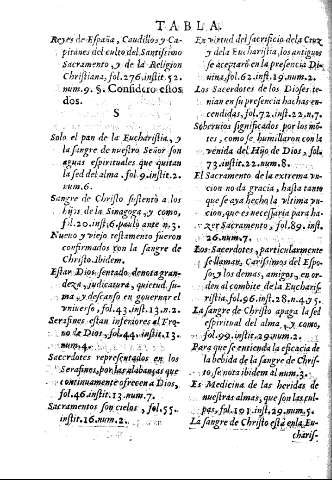 TABLA.
Reyes de España, Caudillos y Ca-
pitanes del culto del Santissimo
Sacramento, y de la Religion
Christiana, fol.276.instit.52.
num.9. §. Considero estos
dos.
S
Solo el pan de la Eucharistia, y
la sangre de nuestro Señor son
aguas espirituales que quitan
la sed del alma. fol.9.instit.2.
num.6.
Sangre de Christo sustentò a los
hijos de la Sinagoga, y como,
fol.20.instit.6.paulo ante n.3.
Nueuo y viejo testamento fueron
confirmados con la sangre de
Christo.Ibidem.
Estar Dios sentado, denota gran-
deza, judicatura, quietud, su-
ma, y descanso en gouernar el
vniuerso, fol.43.inst.13.n.2.
Serafines estan inferiores al Tro-
no de Dios, fol.44.instit.13.
num.4.
Sacerdotes representados en los
Serafines, por las alabanças que
continuamente ofrecen a Dios,
fol.46.instit.13.num.7.
Sacramentos son cielos, fol.55.
instit.16.num.2.
En virtud del sacrificio de la Cruz
y de la Eucharistia, los antiguos
se aceptarõ en la presencia Di-
uina, fol.62.inst.19.num.2.
Los Sacerdotes de los Dioses te-
nian en su presencia hachas en-
cendidas, fol.72.inst.22.n.7.
Soberuios significados por los mõ-
tes, como se humillaron con la
venida del Hijo de Dios, fol.
73.instit.22.num.8.
El Sacramento de la extrema vn-
cion no da gracia, hasta tanto
que se aya hecho la vltima vn-
cion, que es necessaria para ha-
zer Sacramento, fol.89.inst.
26.num.7.
Los Sacerdotes, particularmente
se llaman, Carissimos del Espo-
so, y los demas, amigos, en or-
den al combite de la Eucharis-
tia, fol.96.inst.28.n.4.y 5.
La sangre de Christo apaga la sed
espiritual del alma, y como,
fol.99.instit.29.num.2.
Para que se entienda la eficacia de
la bebida de la sangre de Chris-
to, se nota ibidem al num.3.
Es Medicina de las heridas de
nuestras almas, que son las cul-
pas, fol.101.inst.29.num.5.
La sangre de Christo està en la Eu
charis-